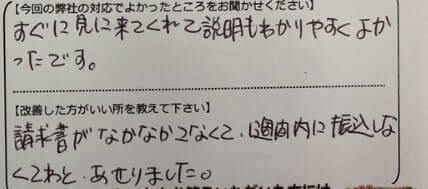 【今回の弊社の対応でよかったところをお聞かせください】
すぐに見に来てくれて説明もわかりやすくよか
ったです。
【改善した方がいい所を教えて下さい】
請求書がなかなかこなくて、1週間内に振込しな
くてわと、あせりました。